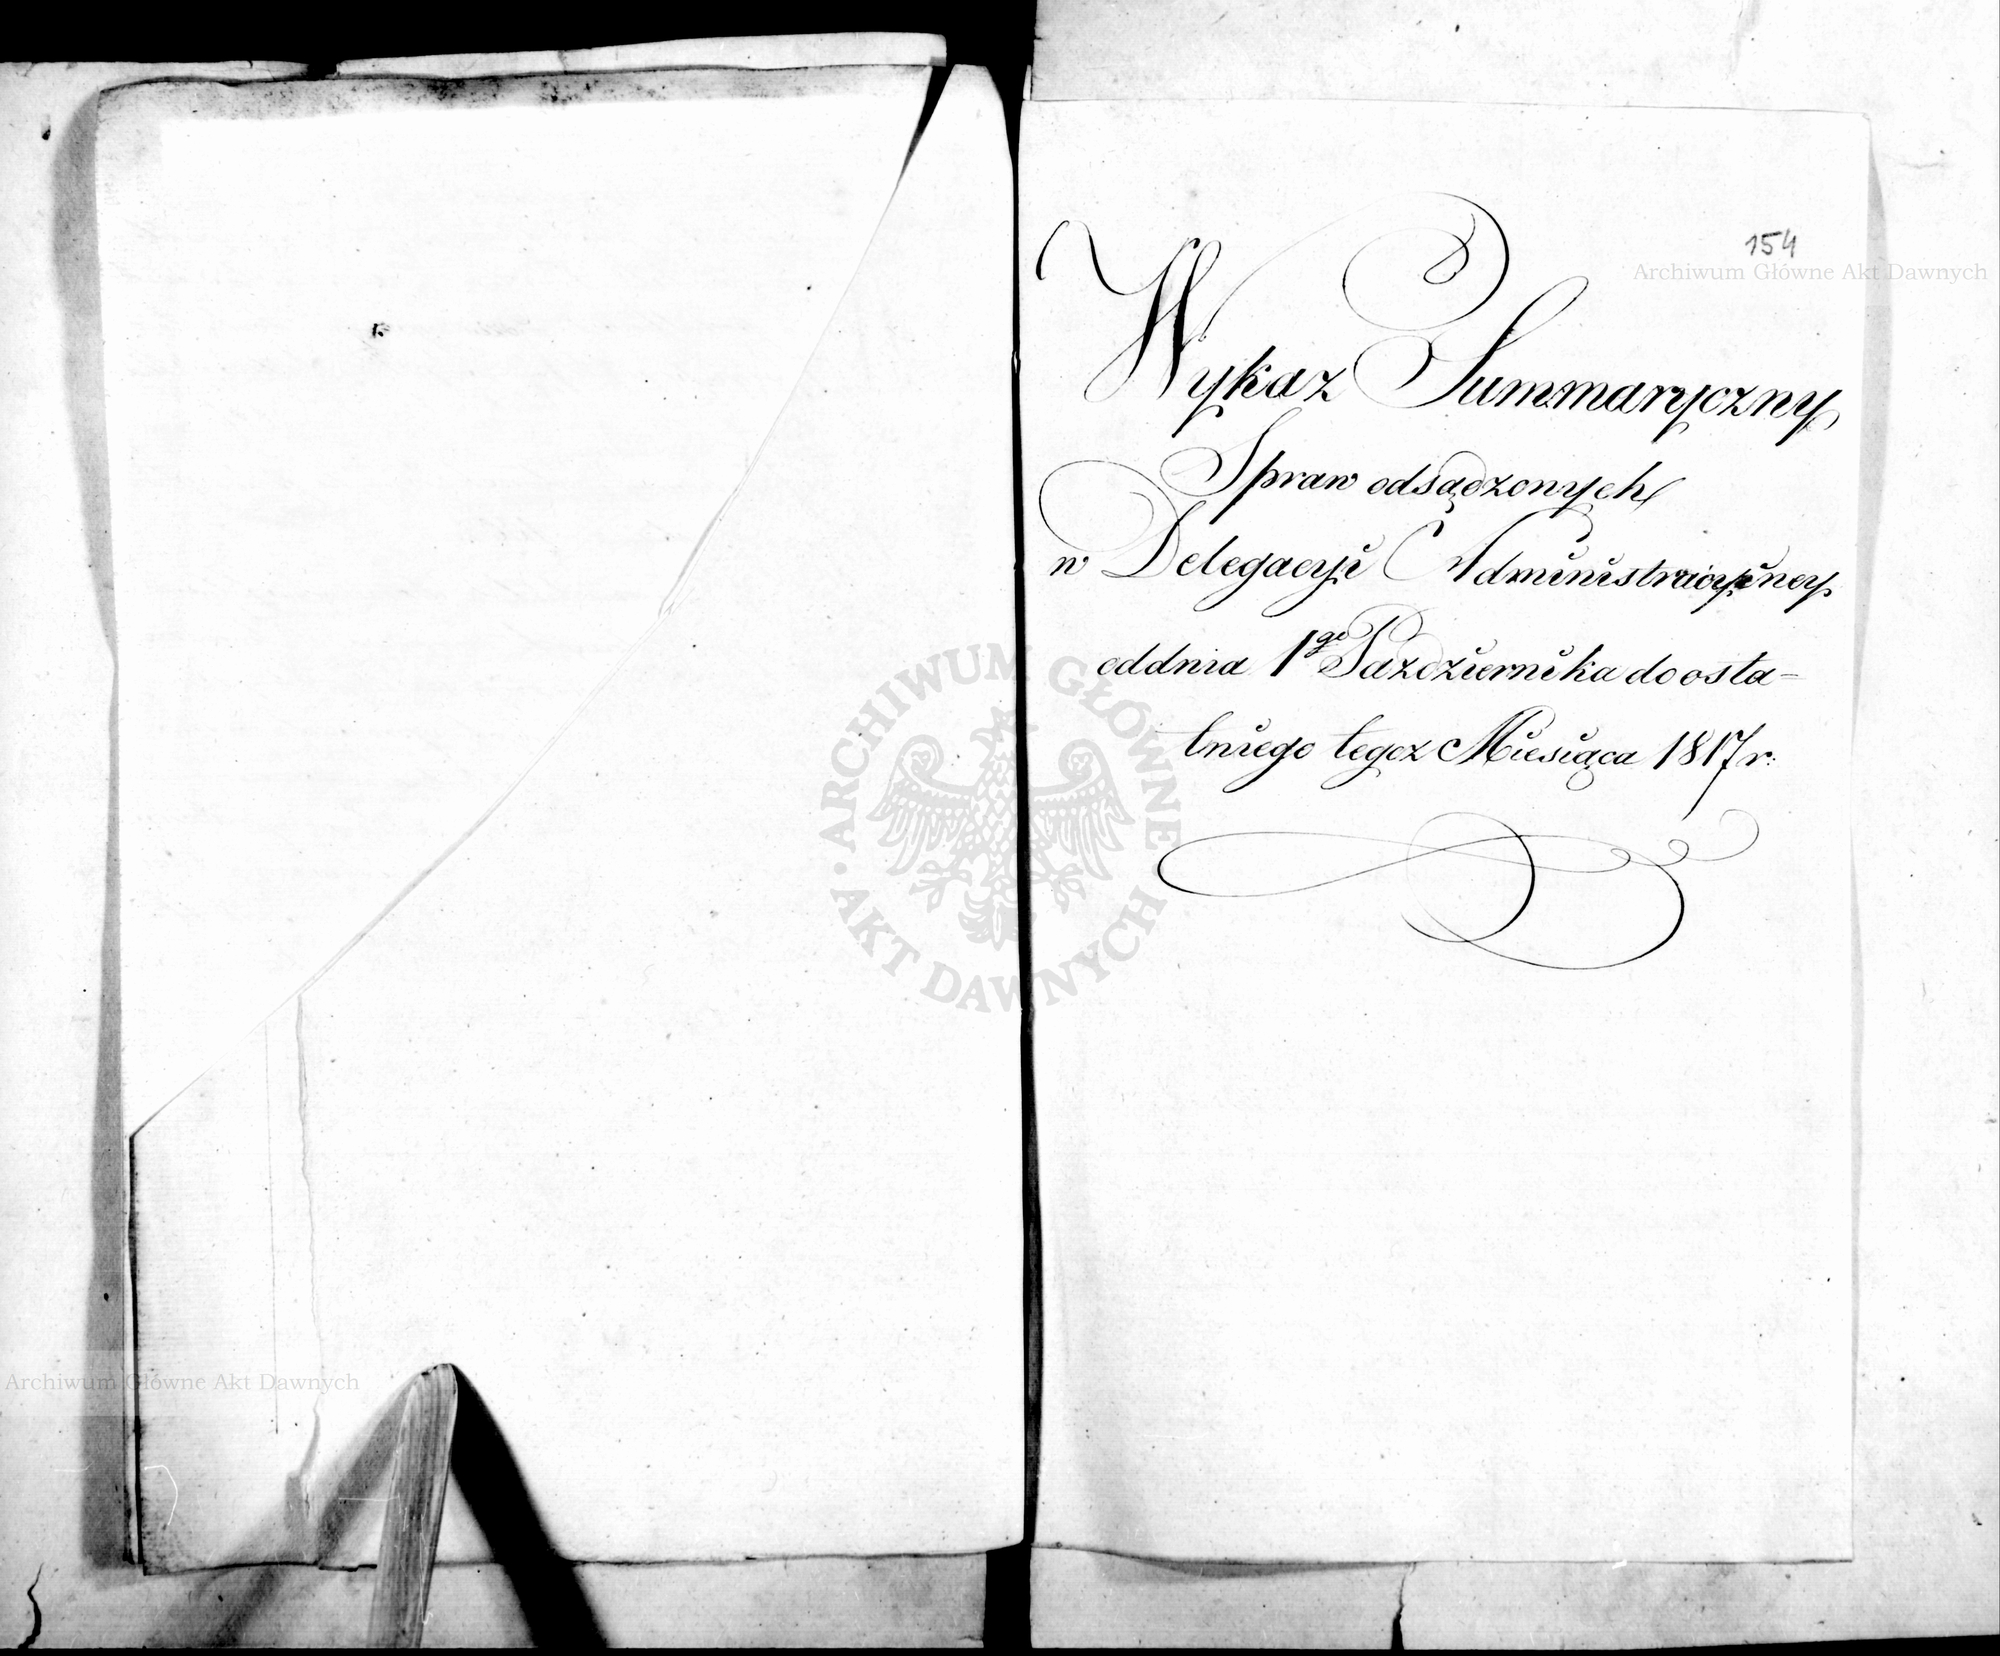 154
Archiwum Główne Akt Dawnych
Wykaz Summaryczny
Spraw odsądzonych
w Delegacyi Administracyiney
oddnia 1go Pazdziernika do osta-
tniego tegoz Miesiąca 1817 r:
ARCHIWUM GŁÓWNE AKT DAWNYCH
Archiwum Główne Akt Dawnych